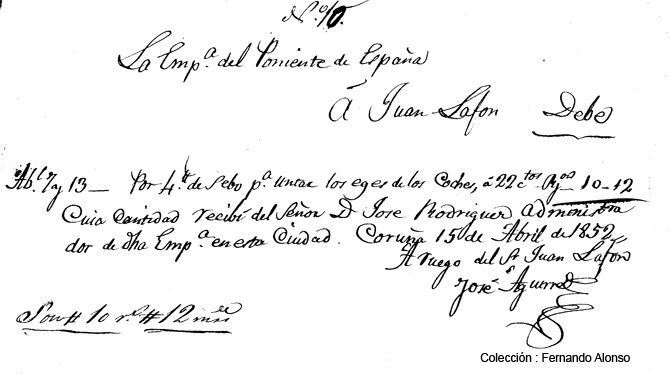 N.º 10.
La Emp.ª del Poniente de España
Á Juan Lafon Debe
Ab.l 7 y 13 — Por 4 @ de Sebo p.ª untar los eges de los Coches, á 22 c.tos 10-12
Cuia Cantidad recibí del Señor D. Jose Rodriguez administra
dor de dha Emp.ª en esta Ciudad. Coruña 15 de Abril de 1852
A ruego del Sr Juan Lafon
José Aguirre
Son # 10 r.s # 12 mrs
Colección : Fernando Alonso